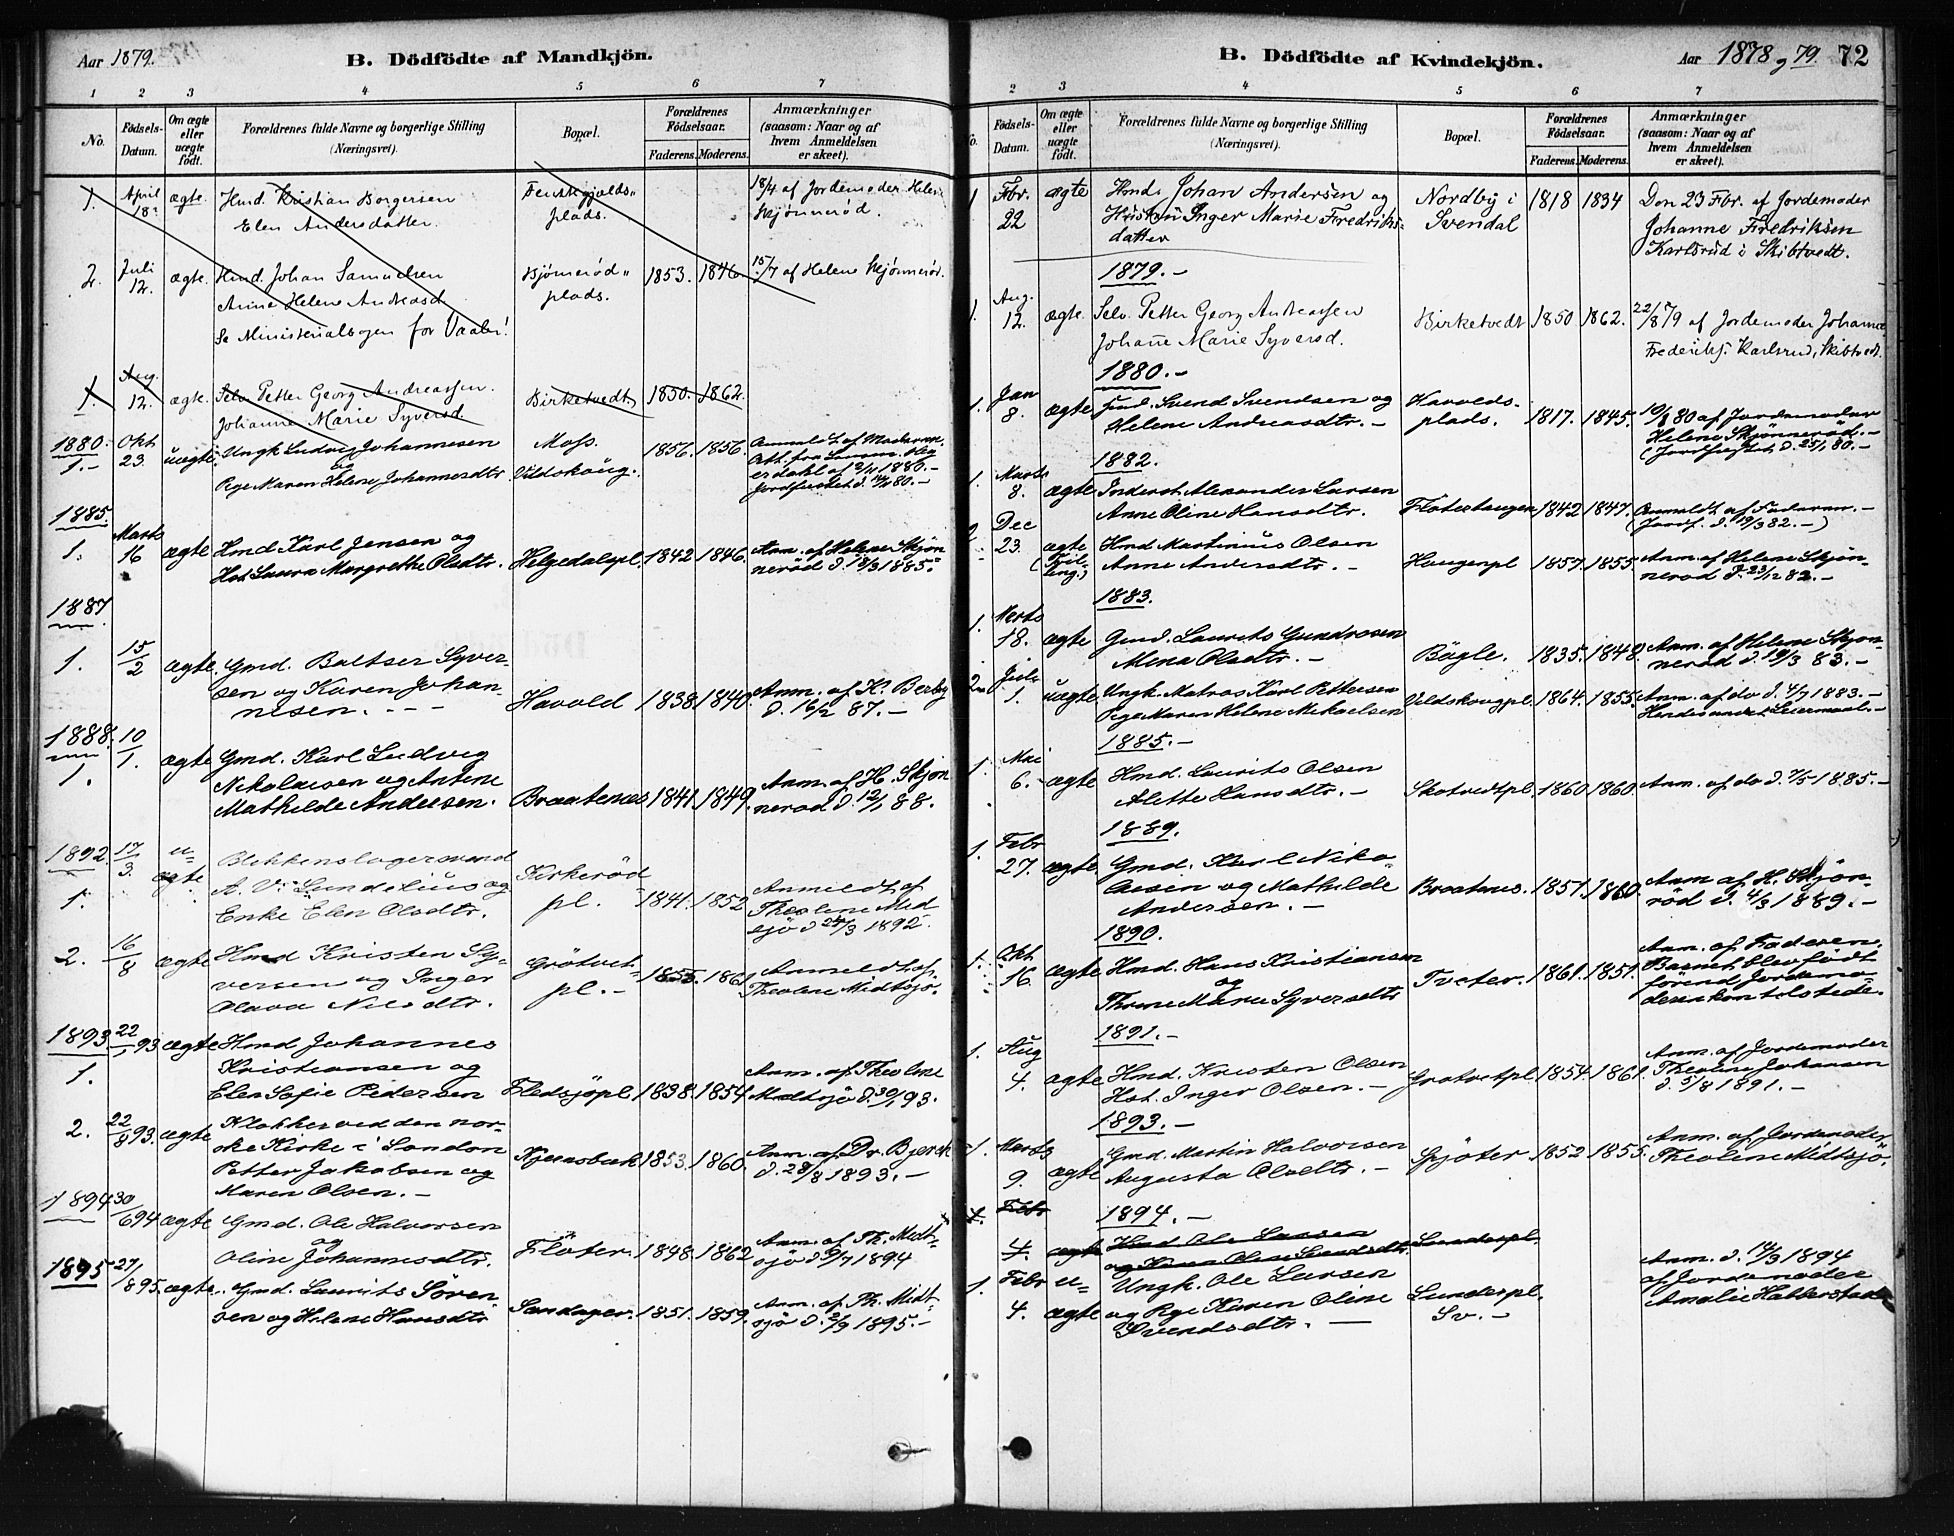 Aar 1879.
B. Dödfödte af Mandkjön.
1 2 3 4 5 6 7
No.
Födsels-Datum.
Om ægte eller uægte födt.
Forældrenes fulde Navne og borgerlige Stilling (Næringsvei).
Bopæl.
Forældrenes Födselsaar.
Faderens. Moderens.
Anmærkninger (saasom: Naar og af hvem Anmeldelsen er skeet).
1. April 18. ægte. Hmd. Kristian Borgersen
Elen Andersdatter.
plads.
18/4 af Jordemoder Helene
Skjönneröd.
2. Juli 12. ægte. Hmd. Johan Samuelsen
Anne Helene Andreasd.
Se Ministerialbogen for Vaaler!
Bjørnerød-
plads.
1853. 1846.
15/7 af Helene Skjönneröd.
1. Aug. 12. ægte. Selv. Petter Georg Andreassen.
Johanne Marie Syversd.
Birketvedt 1850. 1862.
1880.
1.- Okt 23. uægte. Ungk Ludvig Johannesen
og
Pige Maren Helene Johannesdtr
Moss.
Vildskoug.
1856. 1856.
Anmeldt af Moderen.
Jordfæstet
1885.
1. Marts 16 ægte Hmd. Karl Jensen og
Hst Laura Margrethe Olsdtr.
Helgedalspl. 1842 1846.
Anm. af Helene Skjön-
neröd d. 18/3 1885.
1887.
1. 15/2 ægte. Gmd. Baltser Syver-
sen og Karen Johan-
nesen. - -
Havold 1838. 1840.
Anm. af H. Berby
d. 16/2 87.-
1888.
1. 10/1. ægte Gmd. Karl Ludvig
Nikolaisen og Antene
Mathilde Andersen.
Braatenes 1841. 1849.
Anm. af H. Skjön
neröd d. 12/1 88.
1892.
1. 17/3 u-
ægte
Blikkenslagersvend
A. V. Lundelius og
Enke Elen Olsdtr.
Kirkeröd
pl.
1841. 1852
Anmeldt af
Theolene Mid
sjö d 24/3 1892.
2. 16/8 ægte Hmd Kristen Sy-
versen og Inger
Olava Nilsdtr.
Grötvet-
pl.-
1855. 1861
Anmeldt af
Theolene Midtsjö.
1893.
1. 22/1 93 ægte Hmd Johannes
Kristiansen og
Elen Sofie Pedersen
Fledsjöpl. 1838. 1854
Anm. af Theolene
Midtsjö d. 30/1 93.
2. 22/8 93. ægte Klokker ved den nor-
ske Kirke i London
Petter Jakobsen og
Maren Olsen.-
Kjernsbæk 1853. 1860.
Anm. af Dr. Bjerck
d. 28/8 1893.-
1894 30/6 94 ægte Gmd. Ole Halvorsen
og
Oline Johannesdtr.
Flöter. 1848. 1862
Anm. af Th. Midt-
sjö d. 9/7 1894
1895 27/8 95. ægte. Gmd. Laurits Sören-
sen og Helene Hansdtr
Sandager. 1851. 1859.
Anm. af Th. Midt-
sjö d. 2/9 1895.-
B. Dödfödte af Kvindekjön.
Aar 1878 og 79. 72
2 3 4 5 6 7
No.
Födsels-Datum.
Om ægte eller uægte födt.
Forældrenes fulde Navne og borgerlige Stilling (Næringsvei).
Bopæl.
Forældrenes Födselsaar.
Faderens. Moderens.
Anmærkninger (saasom: Naar og af hvem Anmeldelsen er skeet).
1 Fbr. 22 ægte Hmd. Johan Andersen og
Hustru Inger Marie Fredriks-
datter
Nordby i
Svendal
1818 1834
Den 23 Fbr. af Jordemoder
Johanne Fredriksen
Karlsrud i Skibtvedt.
1879.-
1. Aug. 12. ægte. Selv. Petter Georg Andreassen
Johanne Marie Syversd.
Birketvedt 1850 1862.
22/8 79 af Jordemoder Johanne
Frederiks. Karlsrud, Skibtvedt.
1880.-
1. Jan 8. ægte Svend Svendsen og
Helene Andreasdtr.-
Havolds-
plads.
1817. 1845.
10/1 80 af Jordemoder
Helene Skjönneröd.-
(Jordfæstet d. 25/1 80.-
1882.
1. Marts 8. ægte Inderst Alexander Larsen
Anne Oline Hansdtr.
Flöterhaugen 1842 1847.
Anmeldt af Faderen.-
(Jordf. d. 19/3 82.-)
2 Dec 23. ægte
(Tvil-
ling)
Hmd Martinius Olsen
Anne Andersdtr.-
Haugenpl 1857. 1855
Anm. af Helene Skjön-
neröd d. 23/12 82.-
1883.
1. Marts 18. ægte Gmd. Laurits Gundrosen
Mina Olsdtr.-
Bögle. 1835. 1848.
Anm. af Helene Skjön-
neröd d. 19/3 83.-
2. Juli 1. uægte. Ungk. Matros Karl Pettersen
Pige Maren Helene Mikaelsen
Vildskougpl. 1864. 1855.
Anm. af do d. 4/7 1883.-
Hendes andet Leiermaal.-
1885.-
1. Mai 6. ægte Hmd. Laurits Olsen
Alette Hansdtr.-
Skotvedtpl. 1860 1860.
Anm. af do d. 7/5 1885.-
1889.
1. Febr 27. ægte Gmd. Karl Niko-
laisen og Mathilde
Andersen.-
Braatnes. 1851. 1860.
Anm af H. Skjön-
röd d. 4/3 1889.-
1890.
1. Okt 16. ægte Hmd. Hans Kristiansen
og
Thrine Marie Syversdtr
Tveter. 1861. 1851.
Anm. af Faderen.
Barnet blev födt
förend Jordemo-
deren kom tilstede.
1891.-
1. Aug 4. ægte Hmd. Kristen Olsen
Hst. Inger Olsen.-
Grotvetpl 1854. 1861
Anm. af Jordemoder
Theolene Johansen
d. 5/8 1891.-
1893.-
1. Marts 9. ægte Gmd. Martin Halvorsen
Augusta Olsdtr.-
Gjöter 1852 1855.
Anm. af Jordemoder
Theolene Midtsjö.
1894.-
1. Febr 4. ægte Hmd Ole Larsen
og Karen Oline Svendsdtr.
Lunderpl.
1. Febr 4. u-
ægte
Ungk. Ole Larsen
og Pige Karen Oline
Svendsdtr.-
Lunderpl.
Sv.-
Anm. d. 14/3 1894
af Jordemoder
Amalie